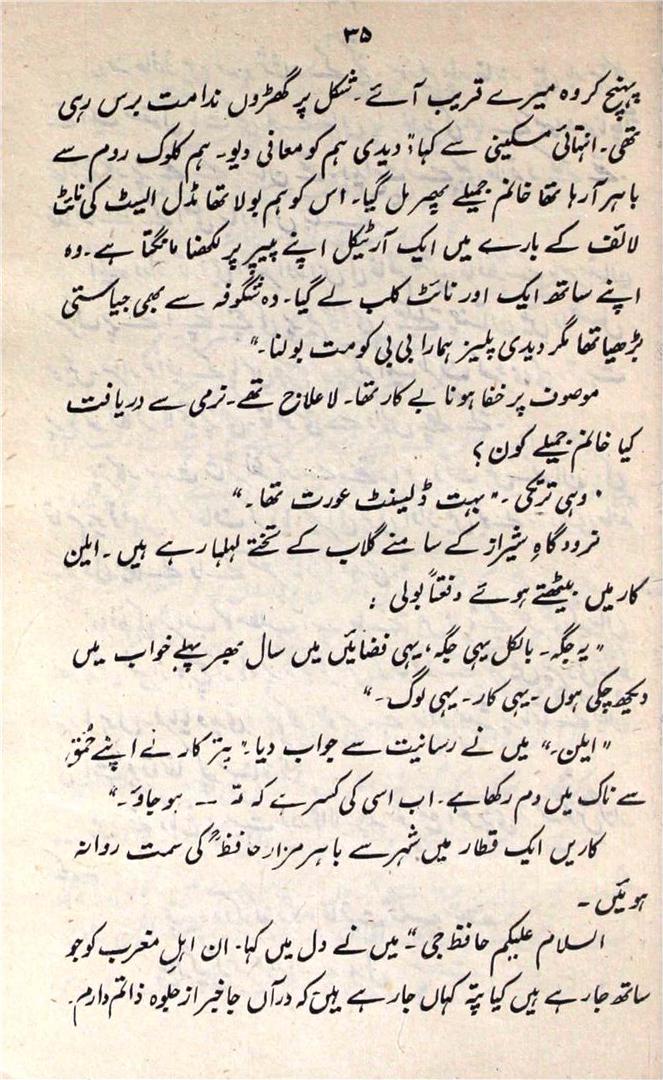 ۳۵
پہنچ کر وہ میرے قریب آئے۔ شکل پر گھڑوں ندامت برس رہی
تھی۔ انتہائی مسکینی سے کہا" دیدی ہم کو معافی دیو۔ ہم کلوک روم سے
باہر آرہا تھا خانم جمیلے پھر مل گیا۔ اس کو ہم بولا تھا مڈل ایسٹ کی نائٹ
لائف کے بارے میں ایک آرٹیکل اپنے پیپر پر لکھنا مانگتا ہے۔ وہ
اپنے ساتھ ایک اور نائٹ کلب لے گیا۔ وہ شگوفہ سے بھی جیاستی
بڑھیا تھا مگر دیدی پلیز ہمارا بی بی کو مت بولنا۔"
موصوف پر خفا ہونا بے کار تھا۔ لاعلاج تھے۔ نرمی سے دریافت
کیا خانم جمیلے کون؟
"وہی ترکی۔" بہت ڈیسنٹ عورت تھا۔"
فرودگاہِ شیراز کے سامنے گلاب کے تختے لہلہا رہے ہیں۔ ایلن
کار میں بیٹھتے ہوئے دفعتاً بولی :
"یہ جگہ۔ بالکل یہی جگہ، یہی فضائیں میں سال بھر پہلے خواب میں
دیکھ چکی ہوں۔ یہی کار۔ یہی لوگ۔"
"ایلن۔" میں نے رسانیت سے جواب دیا۔" پتر کار نے اپنے حُمق
سے ناک میں دم رکھا ہے۔ اب اسی کی کسر ہے کہ تم -- ہو جاؤ۔"
کاریں ایک قطار میں شہر سے باہر مزار حافظؒ کی سمت روانہ
ہوئیں۔
السلام علیکم حافظ جی" میں نے دل میں کہا۔ ان اہلِ مغرب کو جو
ساتھ جا رہے ہیں کیا پتہ کہاں جا رہے ہیں کہ درآں جا خبر از جلوہ ذاتم دارم۔